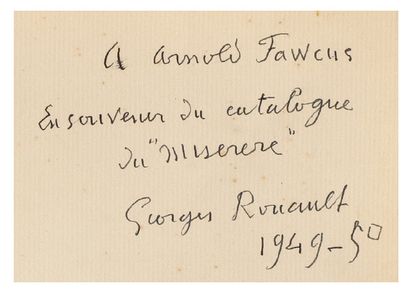 A Arnold Fawcus
En souvenir du catalogue
du "Miserere"
Georges Rouault
1949-50